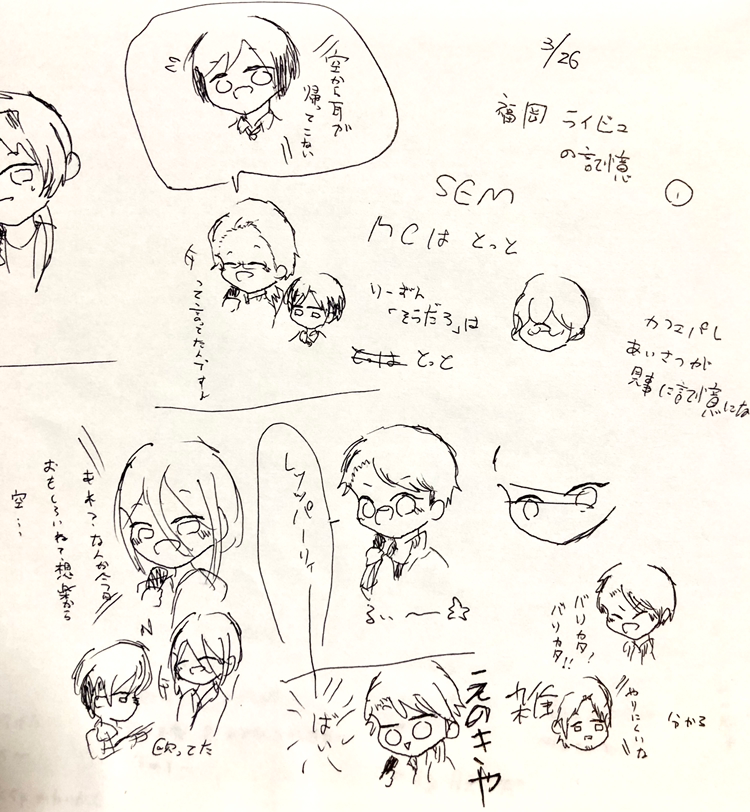 3/26
福岡 ライビュ
の記憶
①
SEM
MCは とっと
りーずん
「そうだろ」は
とっと
カフェパレ
あいさつが
見事に記憶にな
空から耳が
帰ってこない
って言ってたんですよ
レッツパーリィ
るぃ〜〜☆
あれ?なんか今日
おもしろいねて想楽から
空…
殴ってた
ばぃ
えのきや
バリカタ!
バリカタ!!
雅
やりにくいな
分かる